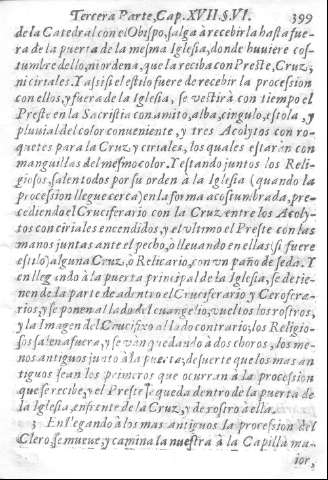 Tercera Parte, Cap. XVII. §. VI. 399
de la Catedral con el Obispo, salga à recebir la hasta fue-
ra de la puerta de la mesma Iglesia, donde huuiere cos-
tumbre dello, ni ordena, que la reciba con Preste, Cruz,
ni ciriales. Y assi si el estilo fuere de recebir la procession
con ellos, y fuera de la Iglesia, se vestirà con tiempo el
Preste en la Sacristia con amito, alba, cingulo, estola, y
pluuial del color conueniente, y tres Acolytos con ro-
quetes para la Cruz, y ciriales, los quales estaràn con
manguillas del mesmo color. Y estando juntos los Reli-
giosos, salen todos por su orden à la Iglesia (quando la
procession llegue cerca) en la forma acostumbrada, pre-
cediendo el Cruciferario con la Cruz entre los Acoly-
tos con ciriales encendidos, y el vltimo el Preste con las
manos juntas ante el pecho, ò lleuando en ellas (si fuere
estilo) alguna Cruz, ò Relicario, con vn paño de seda. Y
en llegando à la puerta principal de la Iglesia, se detie-
nen de la parte de adentro el Cruciferario y Cerofera-
rios, y se ponen al lado del euangelio, vueltos los rostros,
y la Imagen del Crucifixo al lado contrario; los Religio-
sos salen afuera, y se vàn quedando à dos choros, los me-
nos antiguos junto à la puerta, de suerte que los mas an-
tiguos sean los primeros que ocurran à la procession
que se recibe, y el Preste se queda dentro de la puerta de
la Iglesia, enfrente de la Cruz, y de rostro à ella.
3 En llegando à los mas antiguos la procession del
Clero, se mueue, y camina la nuestra à la Capilla ma-
ior,